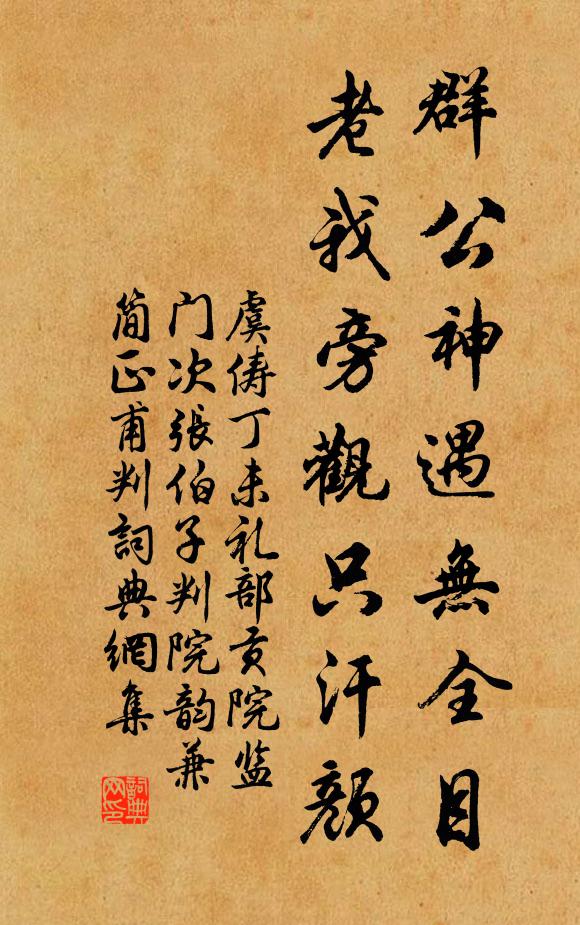 群公神遇無全目
老我旁觀只汗顏
虞儔丁未礼部贡院监
门次張伯子判院韵兼
简正甫判詞典網集
詞典
网印